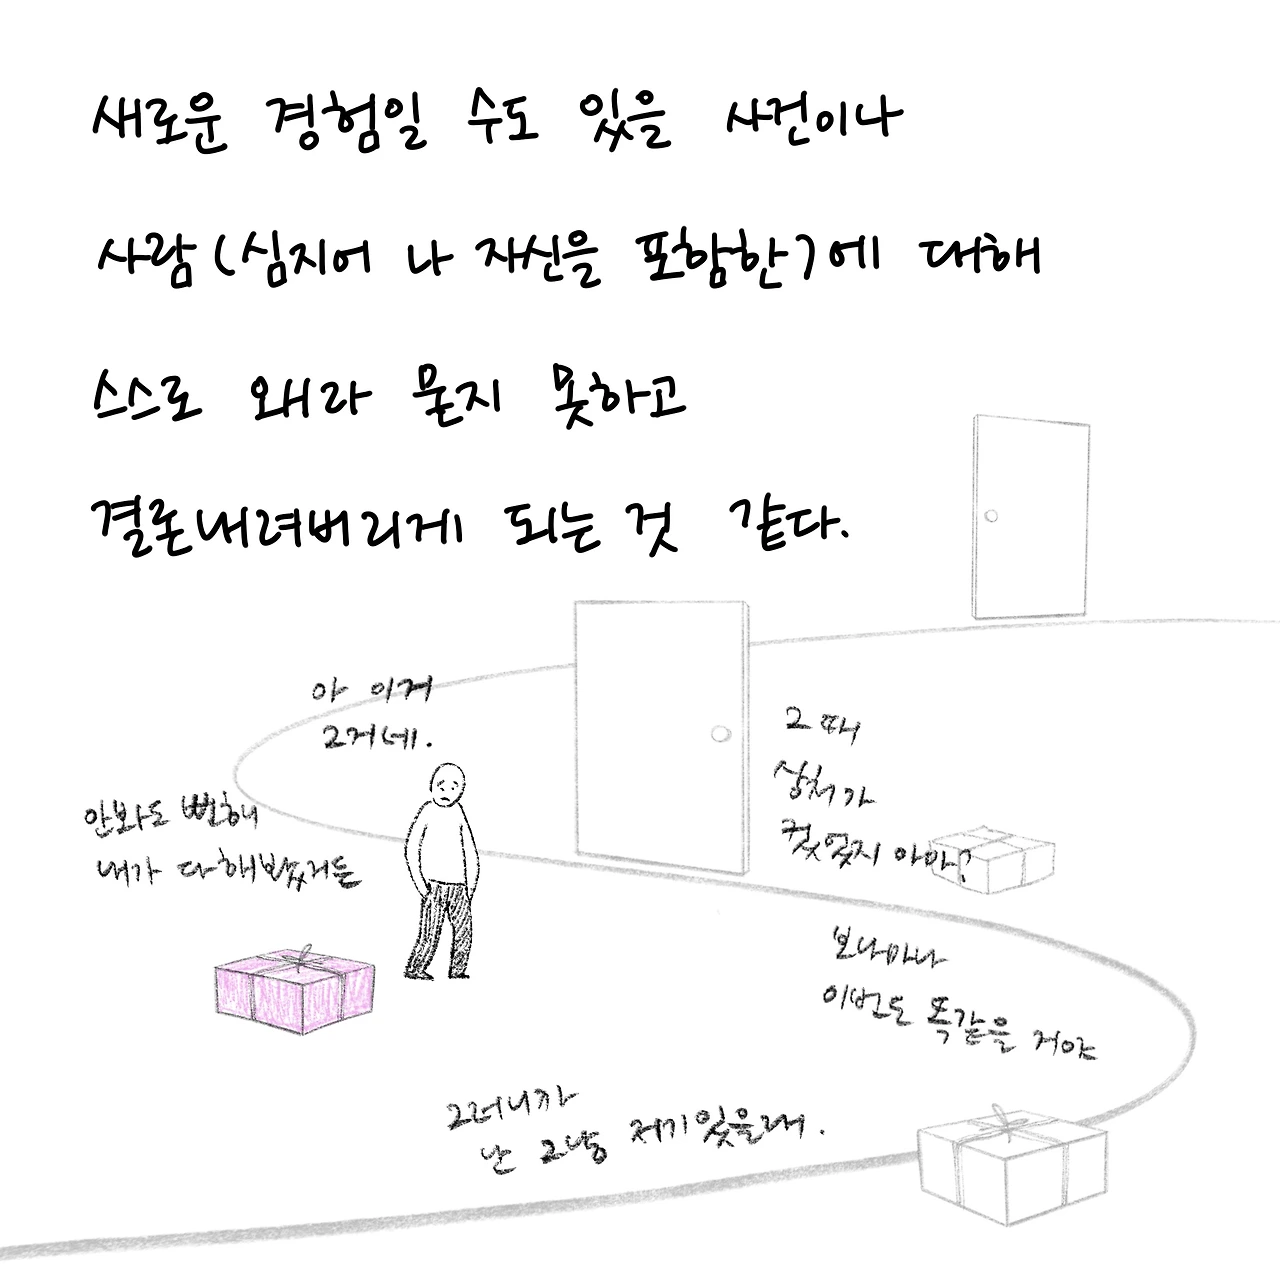 새로운 경험일 수도 있을 사건이나
사람(심지어 나 자신을 포함한)에 대해
스스로 왜라 묻지 못하고
결론내려버리게 되는 것 같다.
아 이거
그거네.
안봐도 뻔해
내가 다 해봤거든
그 때
상처가
컸었지 아마?
보나마나
이번도 똑같을 거야
그러니까
난 그냥 저기있을래.